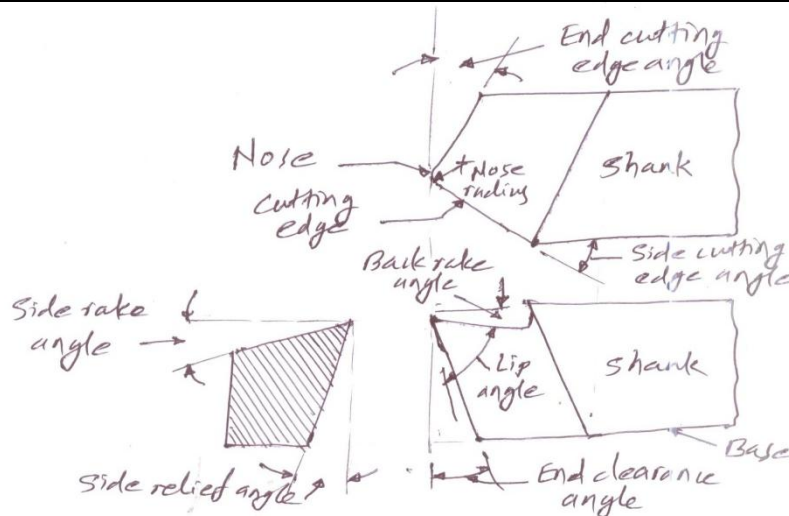 End cutting
edge angle
Nose
Nose
radius
Shank
Cutting
edge
Side cutting
edge angle
Back rake
angle
Side rake
angle
Lip
angle
Shank
Base
Side relief angle
End clearance
angle